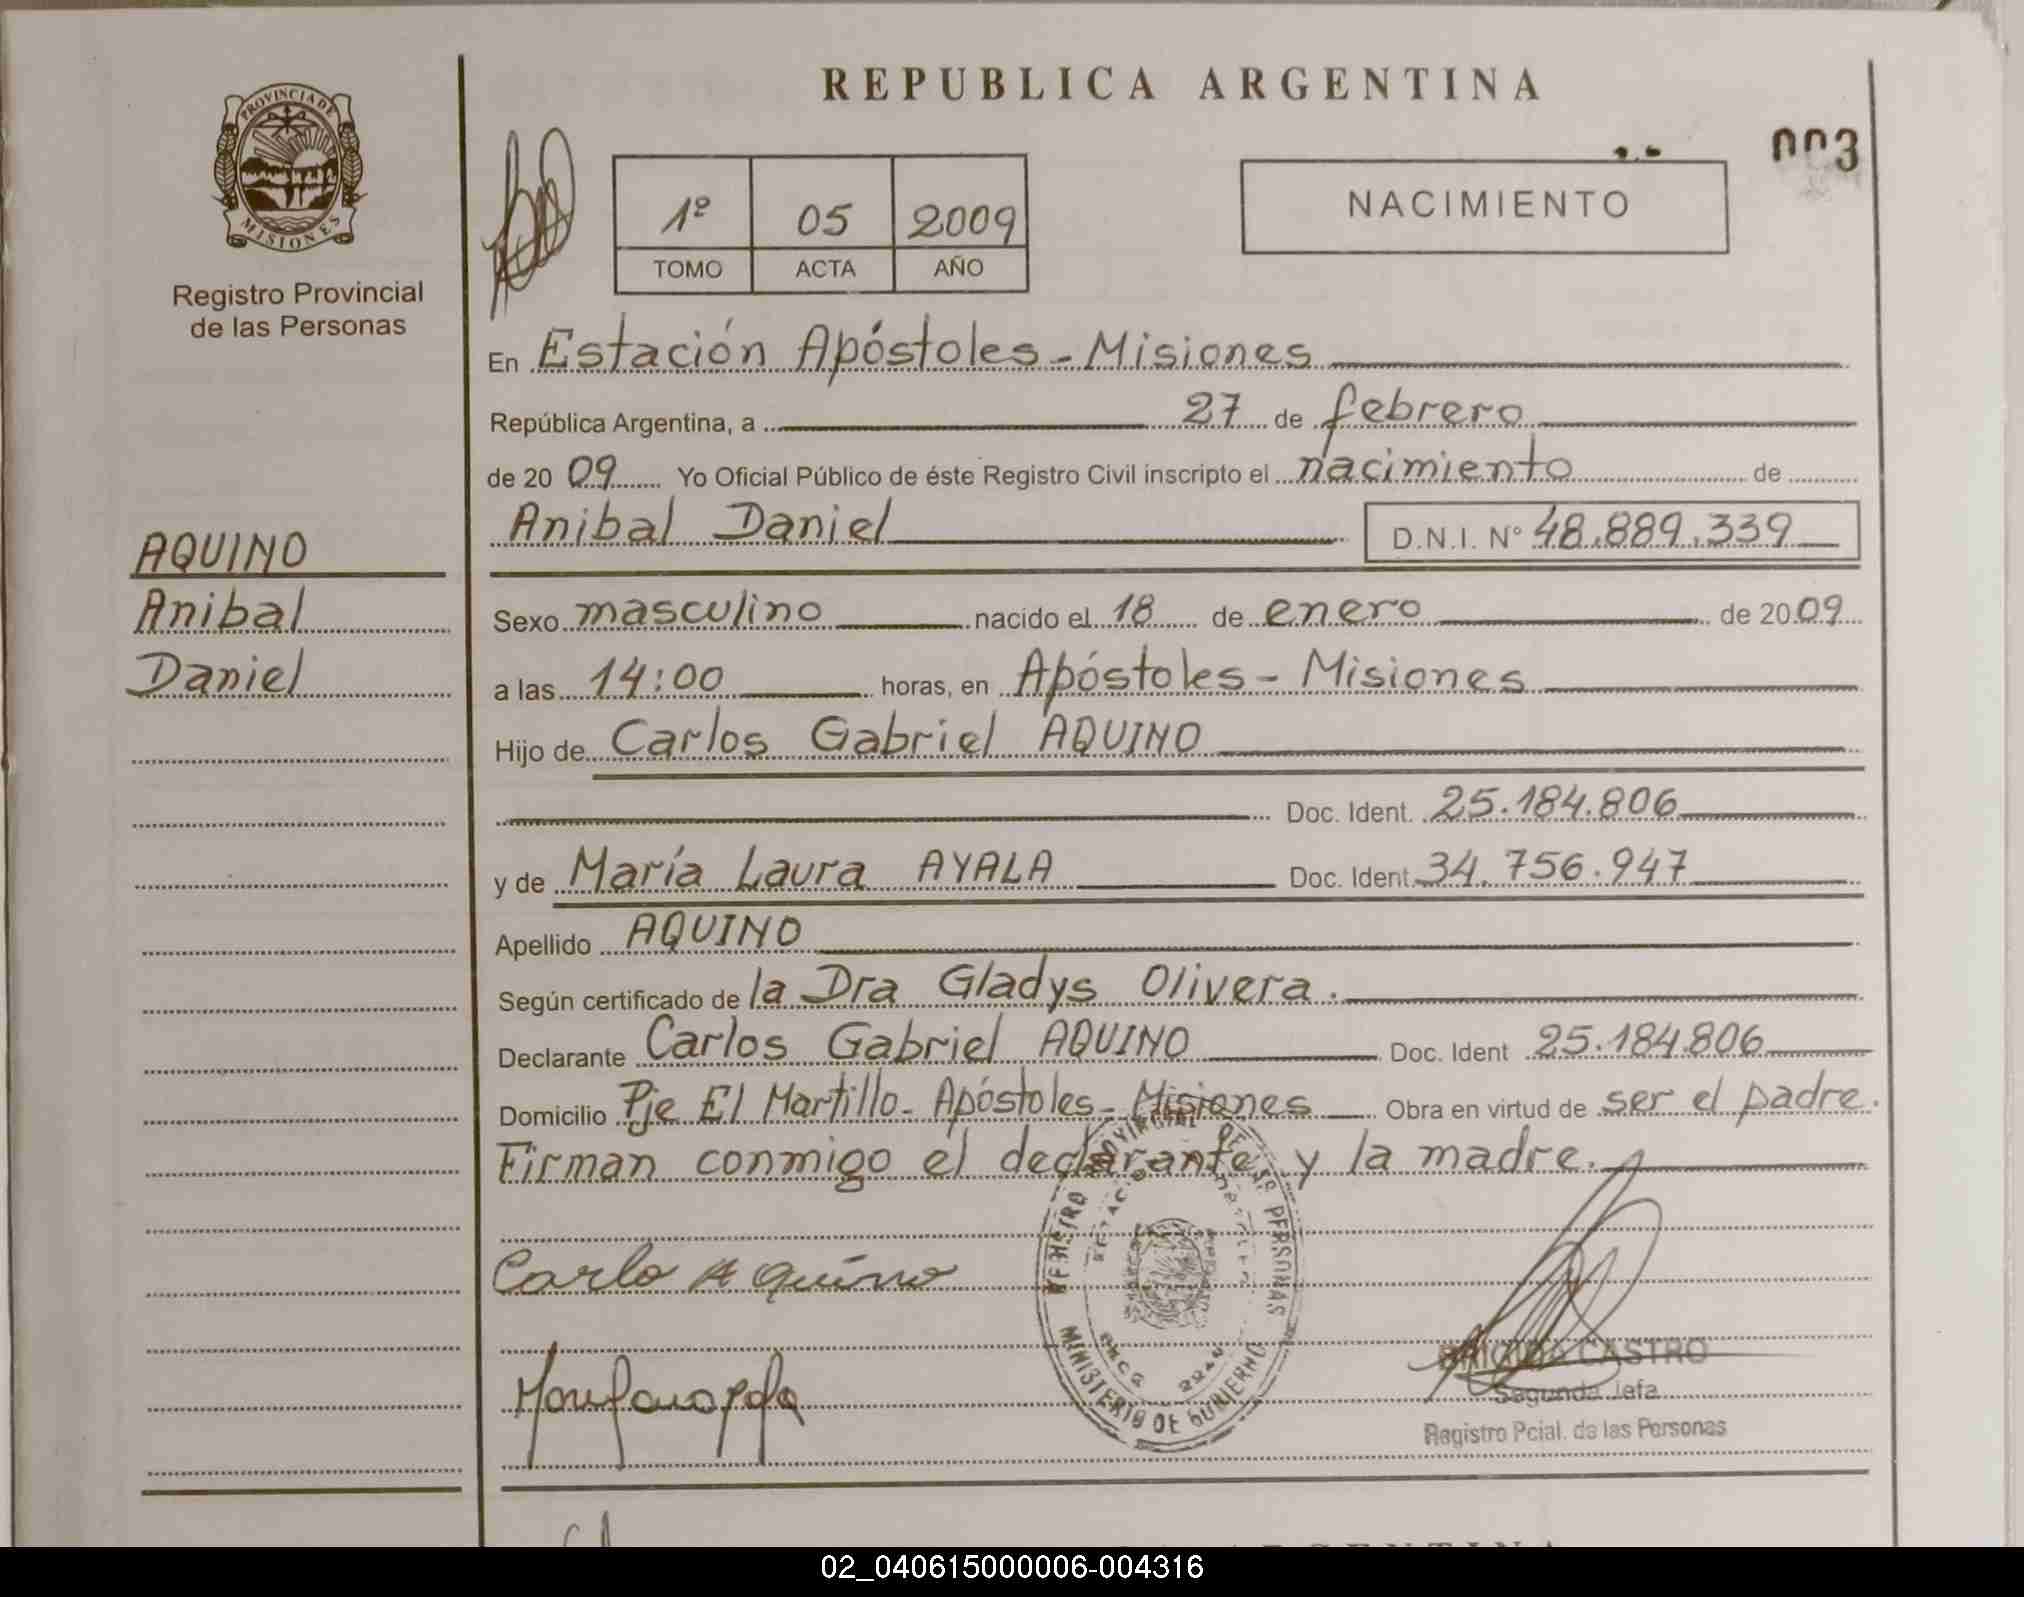 REPUBLICA ARGENTINA
003
PROVINCIA DE
MISIONES
Registro Provincial
de las Personas
1º 05 2009
TOMO ACTA AÑO
NACIMIENTO
En Estación Apóstoles - Misiones
República Argentina, a 27 de febrero
de 2009 Yo Oficial Público de éste Registro Civil inscripto el nacimiento de
Anibal Daniel D.N.I. Nº 48.889.339
AQUINO
Anibal
Daniel
Sexo masculino nacido el 18 de enero de 2009
a las 14:00 horas, en Apóstoles - Misiones
Hijo de Carlos Gabriel AQUINO
Doc. Ident. 25.184.806
y de María Laura AYALA Doc. Ident. 34.756.947
Apellido AQUINO
Según certificado de la Dra Gladys Olivera.
Declarante Carlos Gabriel AQUINO Doc. Ident 25.184.806
Domicilio Pje El Martillo - Apóstoles - Misiones Obra en virtud de ser el padre.
Firman conmigo el declarante y la madre.
Carlo Aquino
REGISTRO PROVINCIAL DE LAS PERSONAS
MINISTERIO DE GOBIERNO
CASTRO
Segunda Jefa
Registro Pcial. de las Personas
02_040615000006-004316